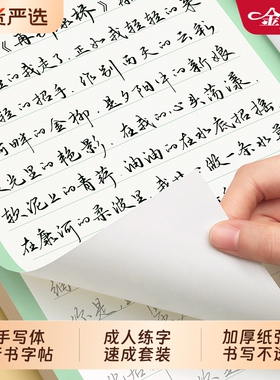 严选
金
《再别康桥》徐
轻的我走了,正如我轻轻的来
轻的招手,作别西天的云彩
河畔的金柳,是夕阳中的新娘
光里的艳影,在我的心头荡漾
软泥上的青荇,油油的在水底招摇
在康河的柔波里,我甘心做一条水草
手写体
字帖
成人练字
速成套装
加厚纸张
书写不透